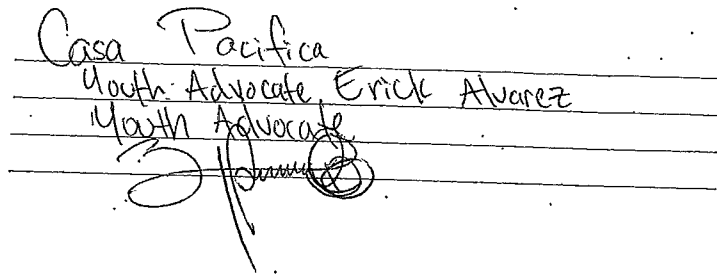 Casa Pacifica
Youth Advocate, Erick Alvarez
Youth Advocate